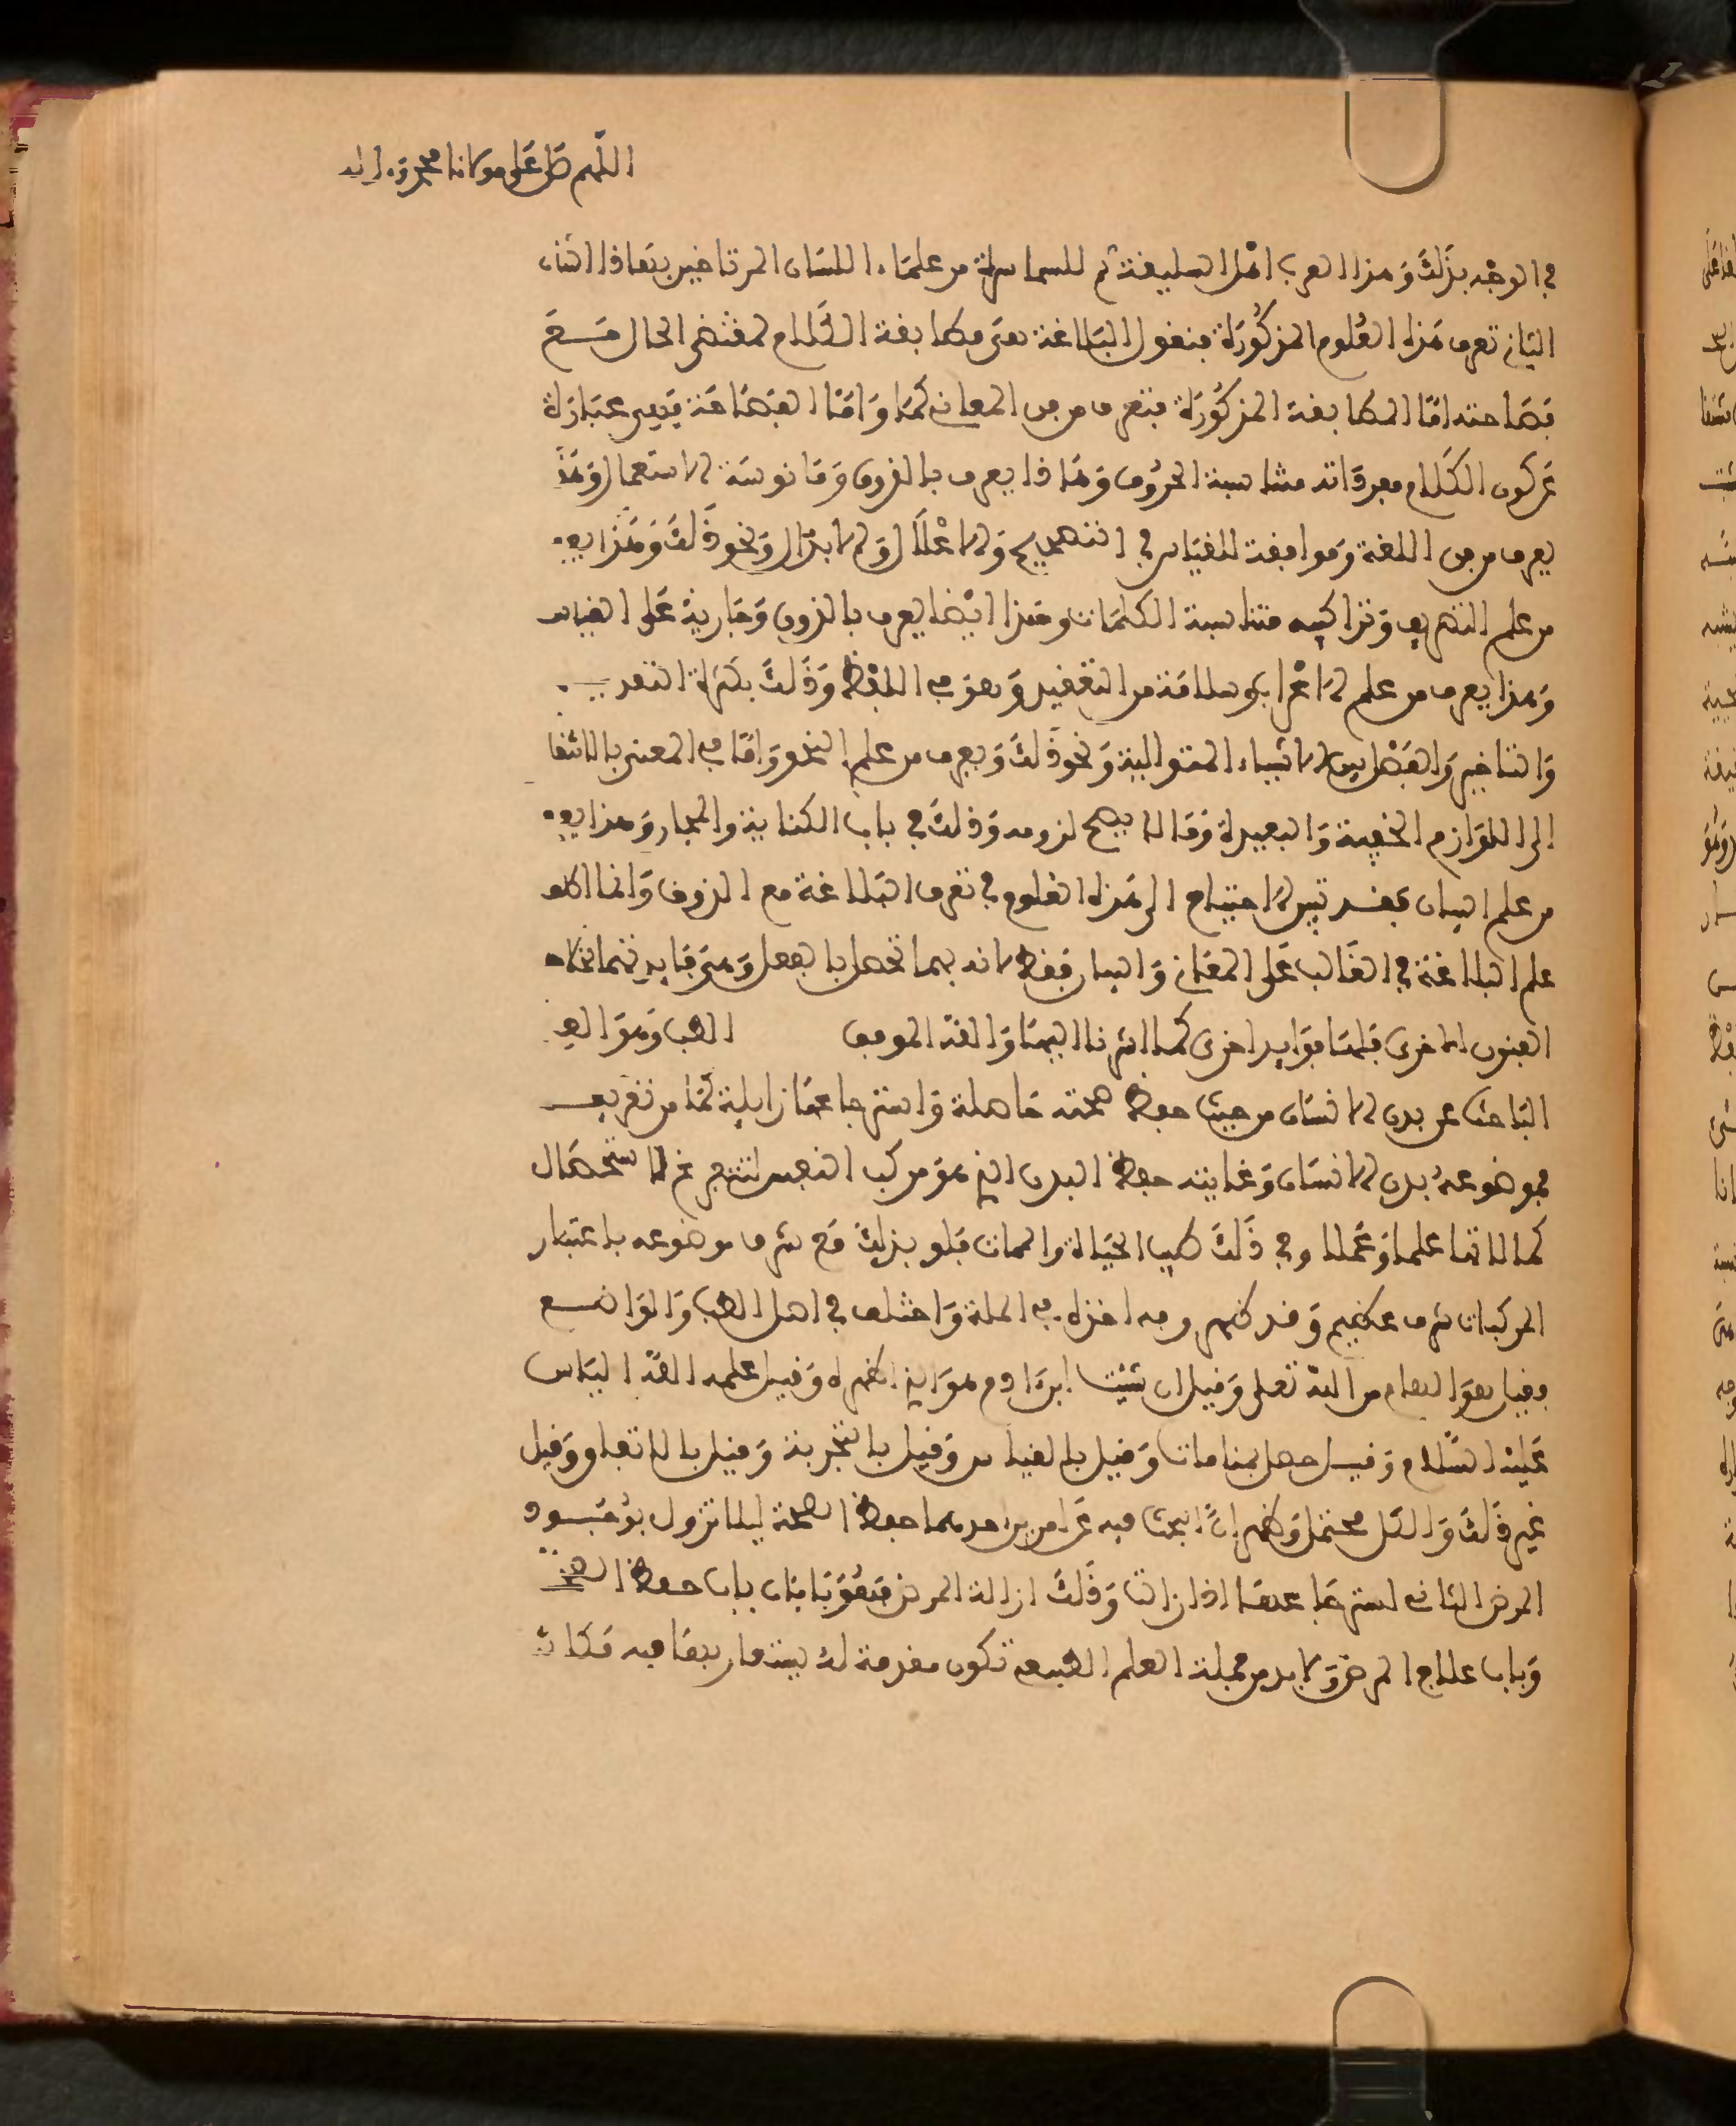 اللّهم صَل عَلى مولانا محمد وءاله
في الوجْه بذَلكَ وَهذا العرب اهْل السليقة ثم للسماسرة من علمَاء اللسَان المرتاضين بتعا
البَيَاني تعرف هَذه العُلوم المذكُورَة فنقول البَلاغة هىَ مطابقة الكَلام لمقتضى الحال مَــعَ
فصَاحته امّا المطابقة المذكُورَة فتعرف من فن المعاني كمَا وَامّا الفصَاحَة فهى عبَارَة
عَن كون الكَلام مفردَاته متناسبة الحرُوف وَهَذا يعرف بالذوق وَمَانوسَة الاستعمال وَهَذَا
يعرف من فن اللغة وَموافقة للقيَاس في التصحيح وَالاعْلَال وَالابدَال وَنحو ذَلكَ وَهَذا يعر
من علم التصريف وَتراكيبه متناسبة الكلمَات وهَذا ايْضا يعرف بالذوق وَجَارية عَلى القياس
وَهذا يعرف من علم الاعْراب وسلامَة من التعقيد وَهوَ في اللفظ وَذَلكَ بكثرَة التقديـــــم
وَالتاخير وَالفصْل بين الاشيَاء المتوالية وَنحو ذَلكَ وَيعرف من علم النحو وَامّا في المعنى بالانتقا
الى اللوَازم الخفية وَالبعيدة وَمَا لا يصح لزومه وَذلكَ في باب الكناية والمجاز وَهذا يعر
من علم البيان فقد تبين الاحتياج الى هَذه العُلوم في تعرف البَلاغة مع الذوق وَانما اطلق
علم البلاغة في الغَالب عَلى المعَاني وَالبيان فقط لانه بهما تحصل بالفعل وَهىَ فَايدتهما بخلاف
الفنون الاخرى فلهَا فوَايد اخرى كمَا اشرنا اليهَا وَاللّه الموفق الطب وَهوَ العلم
البَاحث عن بدن الانسَان من حيث حفظ صحته حَاصلة وَاسترجاعهَا زايلة كمَا من تعريفـــه
فموضوعهُ بدن الانسَان وَغايته حفظ البدن الذي هوَ مركب النفس لتتفرغ لاستحصَال
كمالاتها علما وَعَملا وفي ذَلكَ طيب الحيَاة والممات فلو بذلكَ مَع شرف موضوعه باعتبار
المركبات شرف عظيم وَقد ظهر وجه اخذه في الملة وَاختلف في اهل الطب وَالوَاضــع
وفيل هوَ الهام من اللّه تعلى وَفيل ان شيت ابن ءادم هوَ الذي اظهره وَفيل علمه اللّه اليَاس
عَليْه السَّلام وَفيــل حصل بمنامات وَفيل بالقياس وَفيل بالتجربة وَفيل بالاتفاق وَفيل
غير ذَلكَ وَالكل محتمل وَظهر انَّ البحث فيه عَن امرين احدهما حفظ الصحة ليلا تزول بوُجُــود
المرض الثاني استرجَاعهَا اذا زالت وَذَلكَ ازالة المرض فهُوَ بَابَان باب حفظ الصحـــة
وَباب علاج المرض وَلابد من جملة العلم الطبيعي تكون مقدمة له